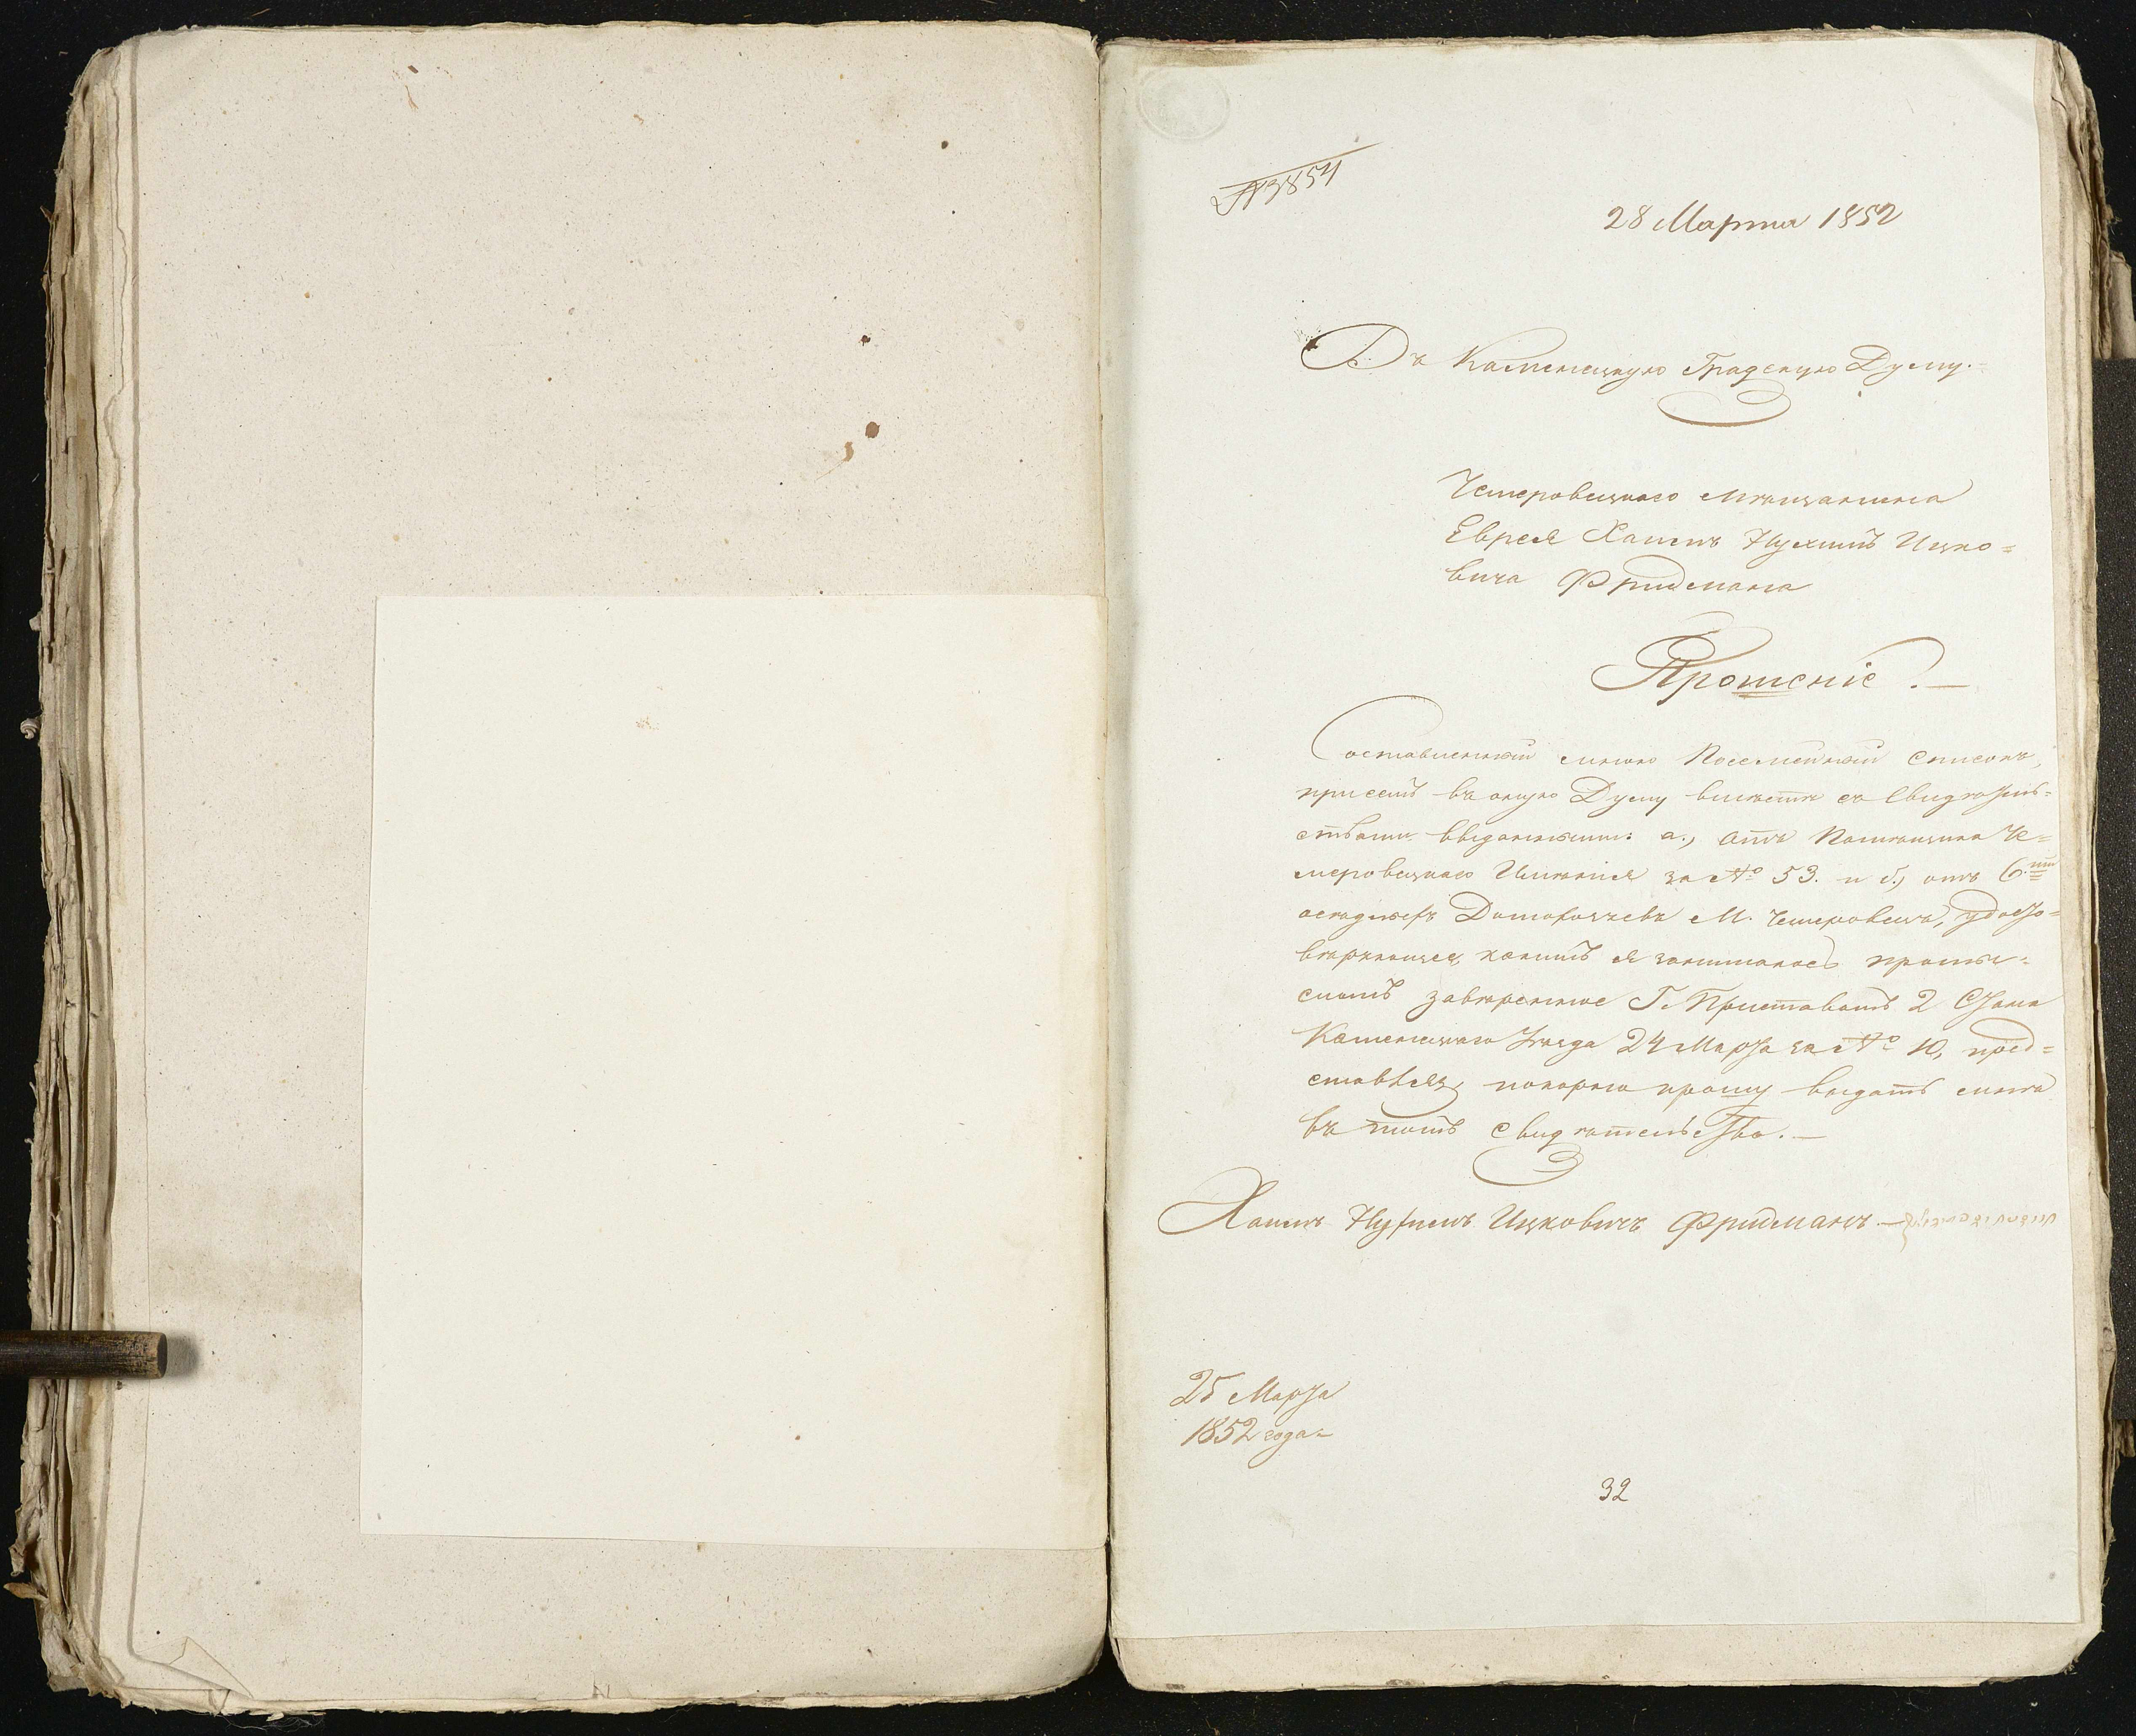 № 3854
28 Марта 1852
Въ Каменецкую Градскую Думу.=
Чемеровецкаго мѣщанина
Еврея Хаимъ Нухимъ Ицко=
вича Фридмана
Прошеніе.—
Составленный мною Посемейный списокъ,
при семъ въ оную Думу вмѣстѣ со свидѣтель=
ствами выданными: а., отъ Помѣщика Че=
меровецкаго Имѣнія за № 53. и б., отъ 6.ти
осѣдлыхъ Домохозяевъ М. Чемеровецъ, удосто=
вѣряющее, какимъ я занимаюсь промы=
сломъ завѣренное Г. Приставомъ 2 Стана
Каменецкаго Уѣзда 24 Марта за № 10, пред=
ставляя, покорно прошу выдать мнѣ
въ томъ свидѣтельство.—
Хаимъ Нухимъ Ицковичъ Фридманъ—
25 Марта
1852 года=
32